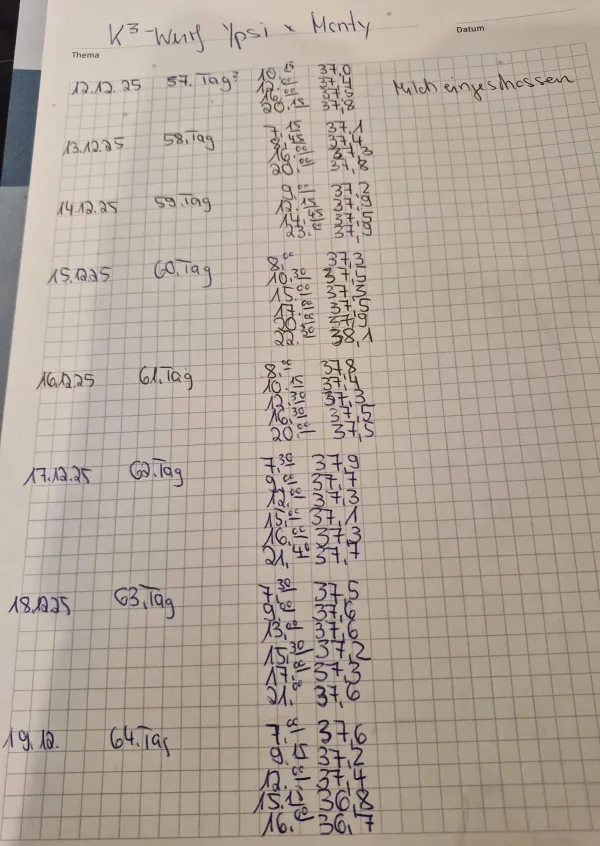 K³-Wurf Ypsi x Monty
Thema
Datum
12.12.25 57. Tag? 10.15 37,0 Milch eingeschossen
12.00 37,4
16.00 37,3
20.15 37,8
13.12.25 58. Tag 7.15 37,1
8.45 37,4
16.00 37,3
20.00 37,8
14.12.25 59. Tag 9.00 37,2
12.15 37,9
14.45 37,5
23.00 37,9
15.12.25 60. Tag 8.00 37,3
10.30 37,5
15.00 37,3
17.00 37,5
20.00 37,9
22.30 38,1
16.12.25 61. Tag 8.00 37,8
10.15 37,4
12.30 37,3
16.30 37,5
20.00 37,5
17.12.25 62. Tag 7.30 37,9
9.00 37,7
12.00 37,3
15.00 37,1
16.00 37,3
21.40 37,7
18.12.25 63. Tag 7.30 37,5
9.00 37,6
13.00 37,6
15.30 37,2
17.00 37,3
21.00 37,6
19.12. 64. Tag 7.00 37,6
9.15 37,2
12.00 37,4
15.15 36,8
16.00 36,7